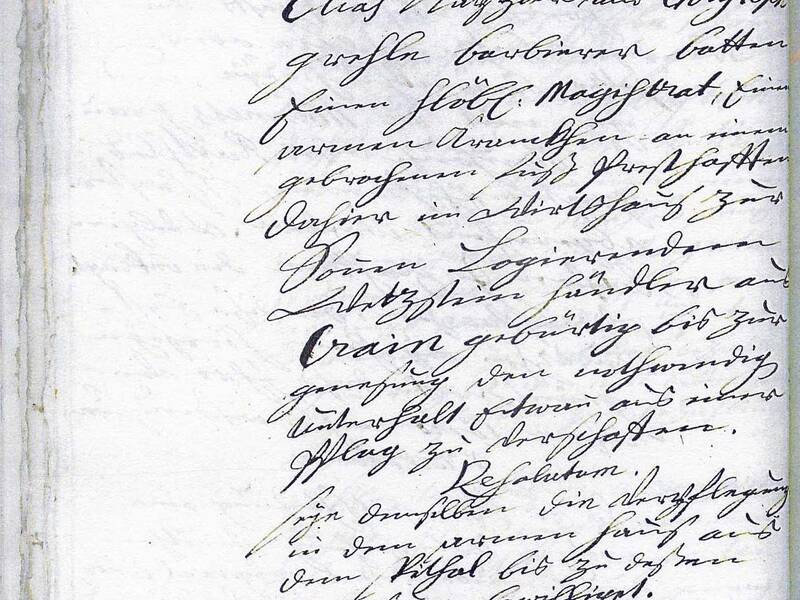 Elias
grehle barbierer batten
Einen Hlöbl: Magistrat, Einen
armen Krankhen an einem
gebrochenen fuß Presthafften
dahier im Wirtshauß zur
Sonnen Logierendem
Wetzstein händler aus
Crain gebürtig bis zur
genesung den nothwendig
Unterhalt Etwan aus einer
Pfleg zu verschaffen.
Resolutum.
seye demselben die Verpflegung
in dem armen Hauß aus
dem Spithal bis zu deßen
bewilliget.